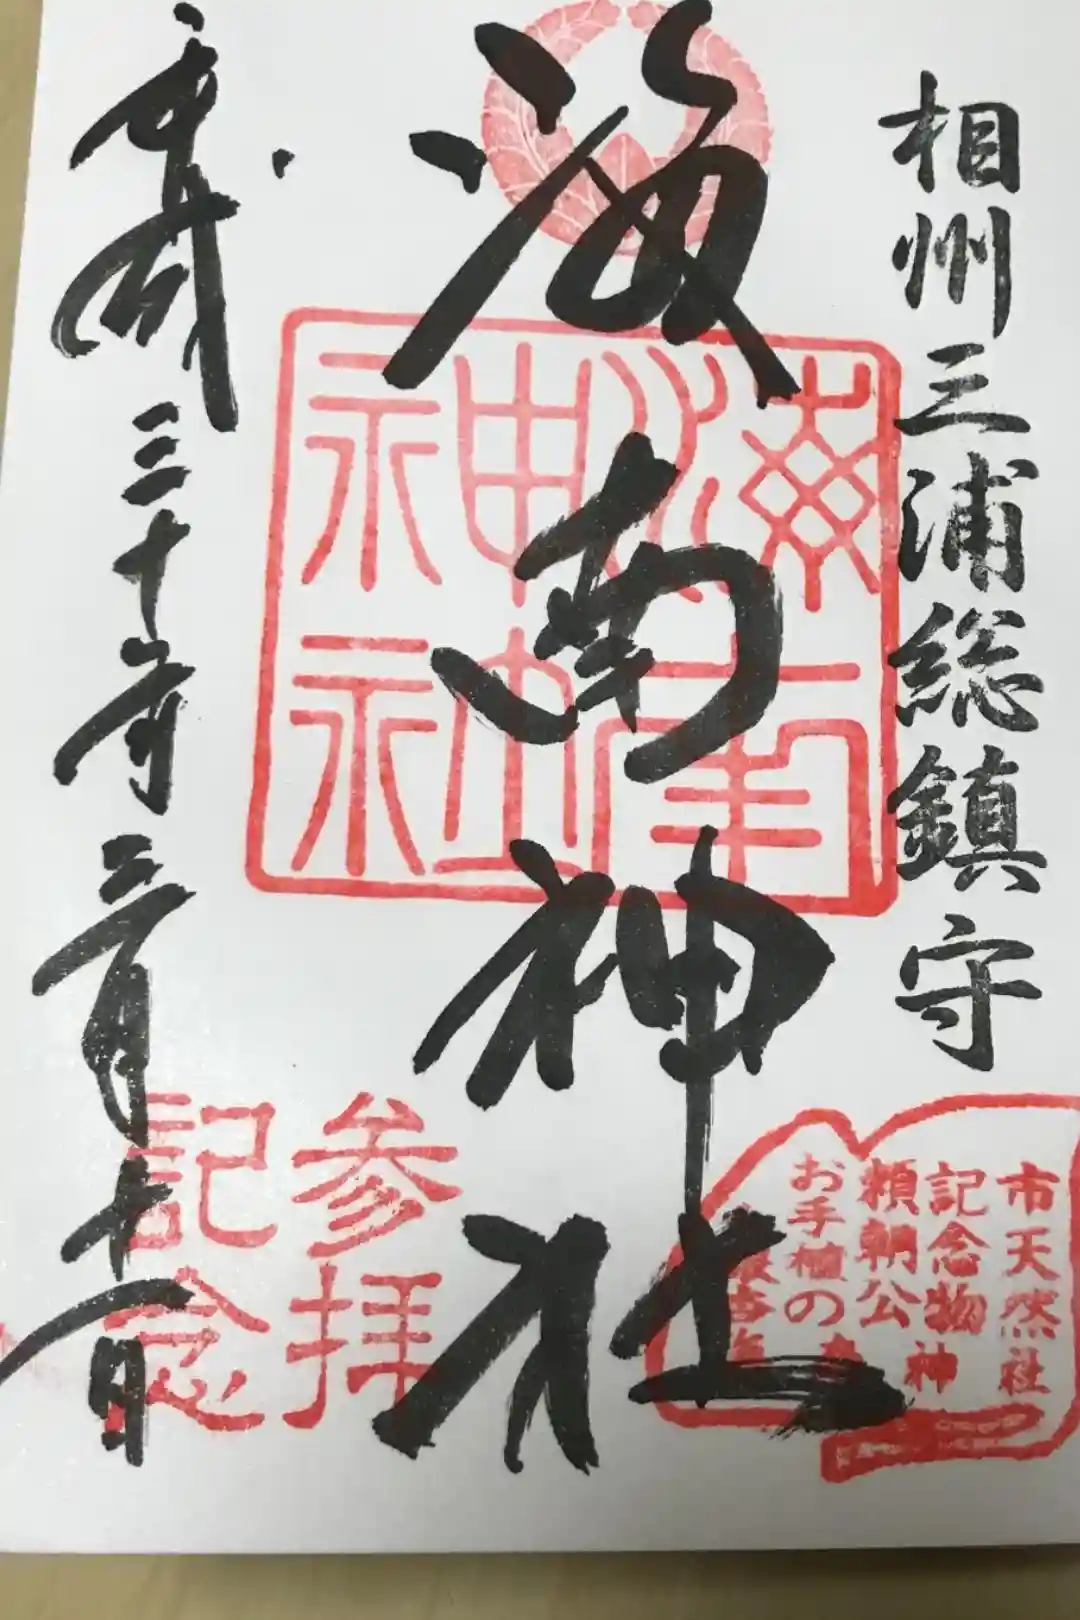 相州三浦総鎮守
海南神社
平成三十年三月十一日
海南
神社
参拝
記念
市天然社
記念物神
頼朝公
お手植の